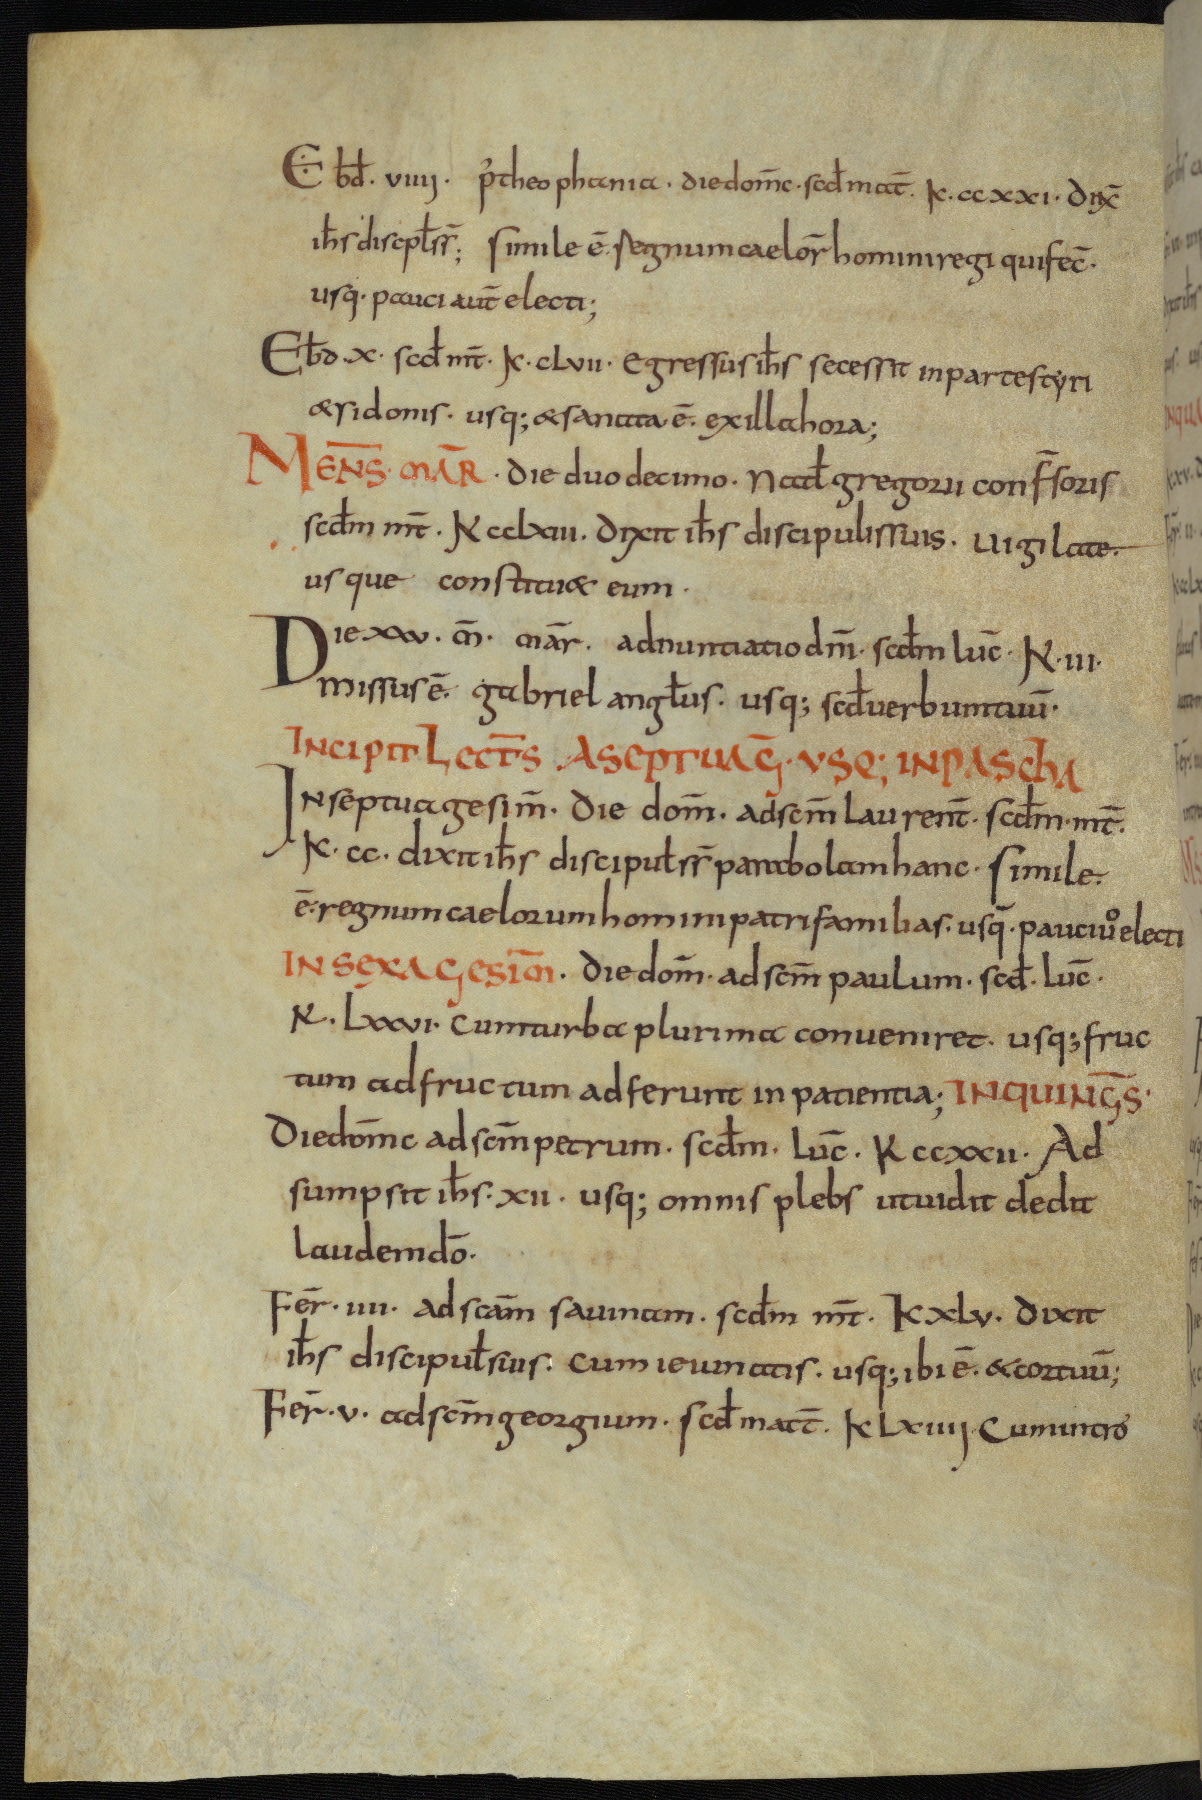 Ebd̄. viiij. p̄ theophania. die dom̄c. scd̄ mat̄. K. ccxxi. Dix̄
ih̄s discipl̄ss̄; Simile ē. regnum caelor̄ homini regi qui fec̄.
usq̄. pauci aut̄ electi;
Eb̄d. x. scd̄ mt̄. K. clvii. Egressus ih̄s secessit in partes tyri
& sidonis. usq; & sanata ē. ex illa hora;
MEN̄S. MĀR. Die duodecimo. Natl̄ gregorii conf̄soris
scd̄m mt̄. K cclxiii. Dixit ih̄s discipulis suis. Uigilate.
usque constitu& eum.
Die xxv. m̄. mār. adnuntiatio dn̄i. scd̄m luc̄. K. iii.
missus ē. gabriel angl̄us. usq; scd̄ uerbum tuū.
INCIPIT LECT̄S. A SEPTUAḠ. USQ; IN PASCHA
In septuagesim̄. Die dom̄. ad scm̄ laurent̄. scd̄m. mt̄.
K. cc. dixit ih̄s discipul̄ss̄ parabolam hanc. Simile.
ē. regnum caelorum homini patrifamilias. usq̄. pauci uº electi
IN SEXAGESIM̄. Die dom̄. ad scm̄ paulum. scd̄. luc̄.
K. lxxvi. Cum turba plurima conueniret. usq; fruc
tum ad fructum adferunt in patientia; IN QUINḠS.
Die dom̄c ad scm̄ petrum. scd̄m. luc̄. K ccxxii. Ad
sumpsit ih̄s. xii. usq; omnis plebs ut uidit dedit
laudem dō.
Fer̄. iiii. ad scam̄ sauinam. scd̄m mt̄. K xlv. Dixit
ih̄s discipul̄ suis. Cum ieiunatis. usq; ibi ē. & cor tuū;
Fer̄. v. ad scm̄ georgium. scd̄ matt̄. K lxiiij. Cum intro